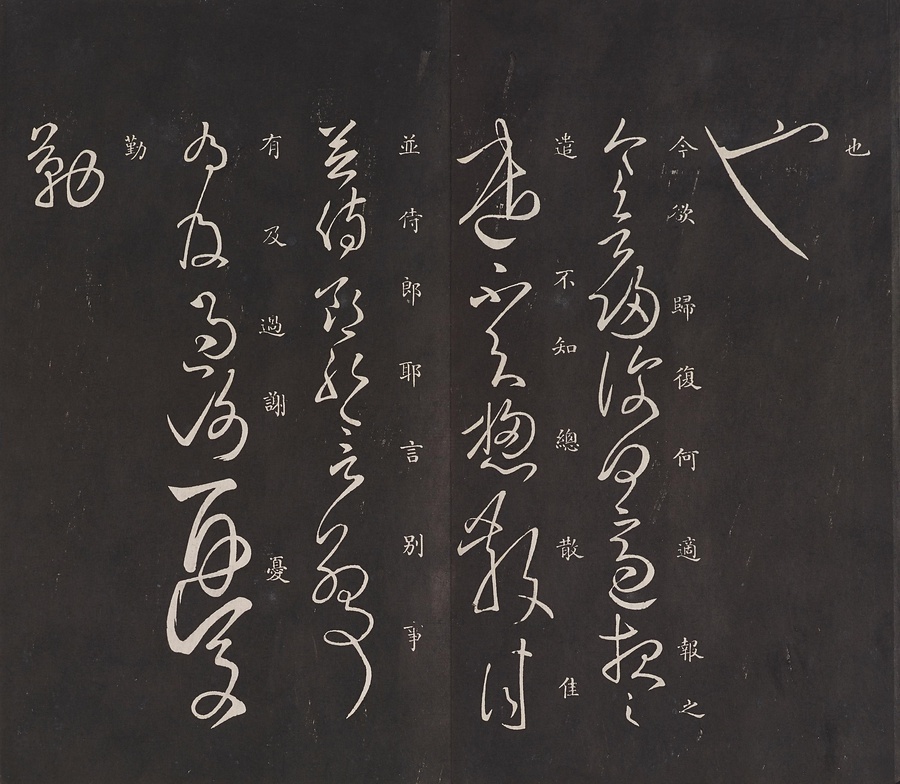 也
今欲歸復何適報之
遣不知總散佳
並侍郎耶言別事
有及過謝憂
勤